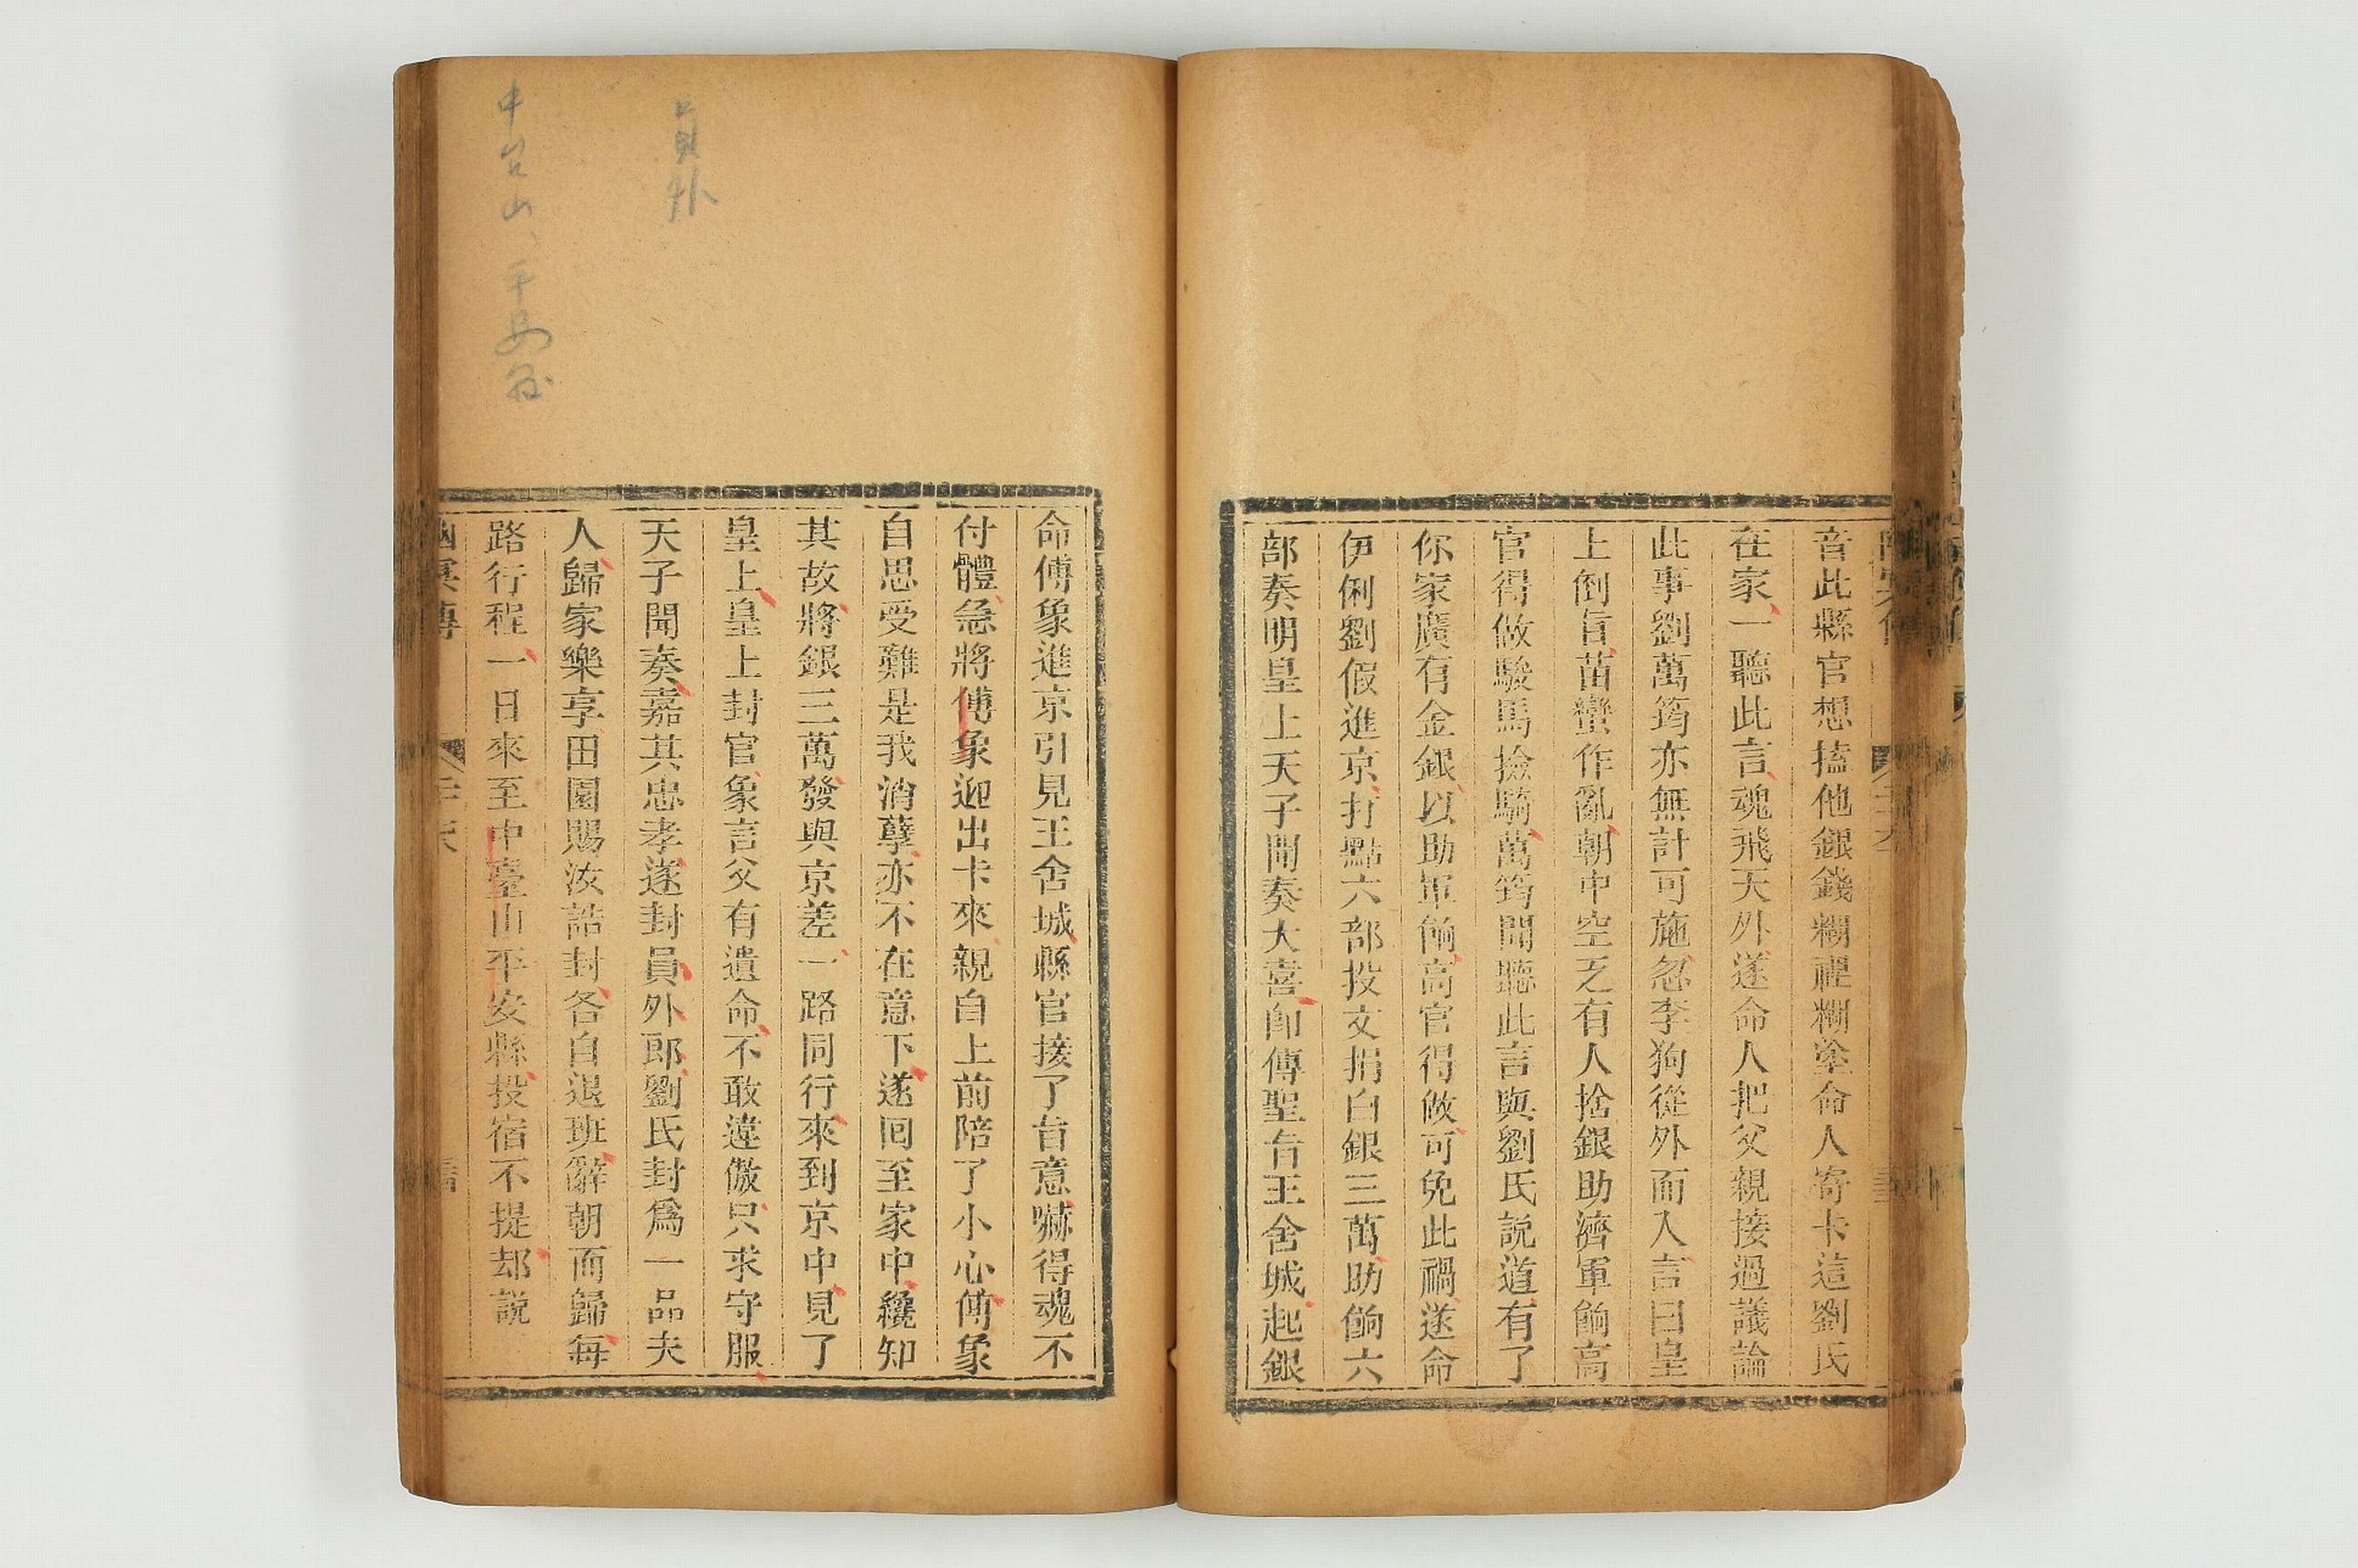 音此縣官想搕他銀錢糊裡糊塗命人寄卡這劉氏
在家一聽此言魂飛天外遂命人把父親接過議論
此事劉萬筠亦無計可施忽李狗從外而入言曰皇
上倒旨苗蠻作亂朝中空乏有人捨銀助濟軍餉高
官得做駿馬撿騎萬筠聞聽此言與劉氏説道有了
你家廣有金銀以助軍餉高官得做可免此禍遂命
伊俐劉假進京打點六部投文捐白銀三萬助餉六
部奏明皇上天子聞奏大喜即傳聖旨王舍城起銀
命傅象進京引見王舍城縣官接了旨意嚇得魂不
付體急將傅象迎出卡來親自上前陪了小心傅象
自思受難是我消孽亦不在意下遂回至家中纔知
其故將銀三萬發與京差一路同行來到京中見了
皇上皇上封官象言父有遺命不敢違傲只求守服
天子聞奏嘉其忠孝遂封員外郎劉氏封爲一品夫
人歸家樂享田園賜汝誥封各自退班辭朝而歸每
路行程一日來至中臺山平安縣投宿不提却説
幽冥傳
員外
中台山、平安县